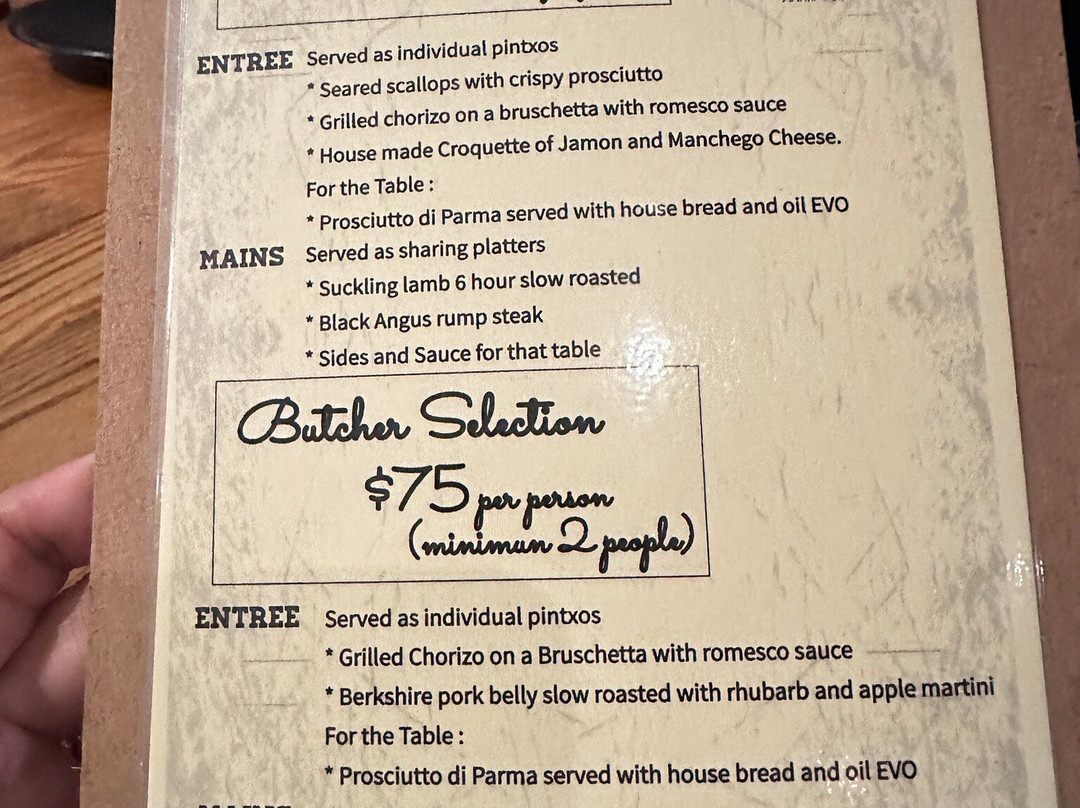 ENTREE Served as individual pintxos
* Seared scallops with crispy prosciutto
* Grilled chorizo on a bruschetta with romesco sauce
* House made Croquette of Jamon and Manchego Cheese.
For the Table :
* Prosciutto di Parma served with house bread and oil EVO
MAINS Served as sharing platters
* Suckling lamb 6 hour slow roasted
* Black Angus rump steak
* Sides and Sauce for that table
Butcher Selection
$75 per person
(minimun 2 people)
ENTREE Served as individual pintxos
* Grilled Chorizo on a Bruschetta with romesco sauce
* Berkshire pork belly slow roasted with rhubarb and apple martini
For the Table :
* Prosciutto di Parma served with house bread and oil EVO